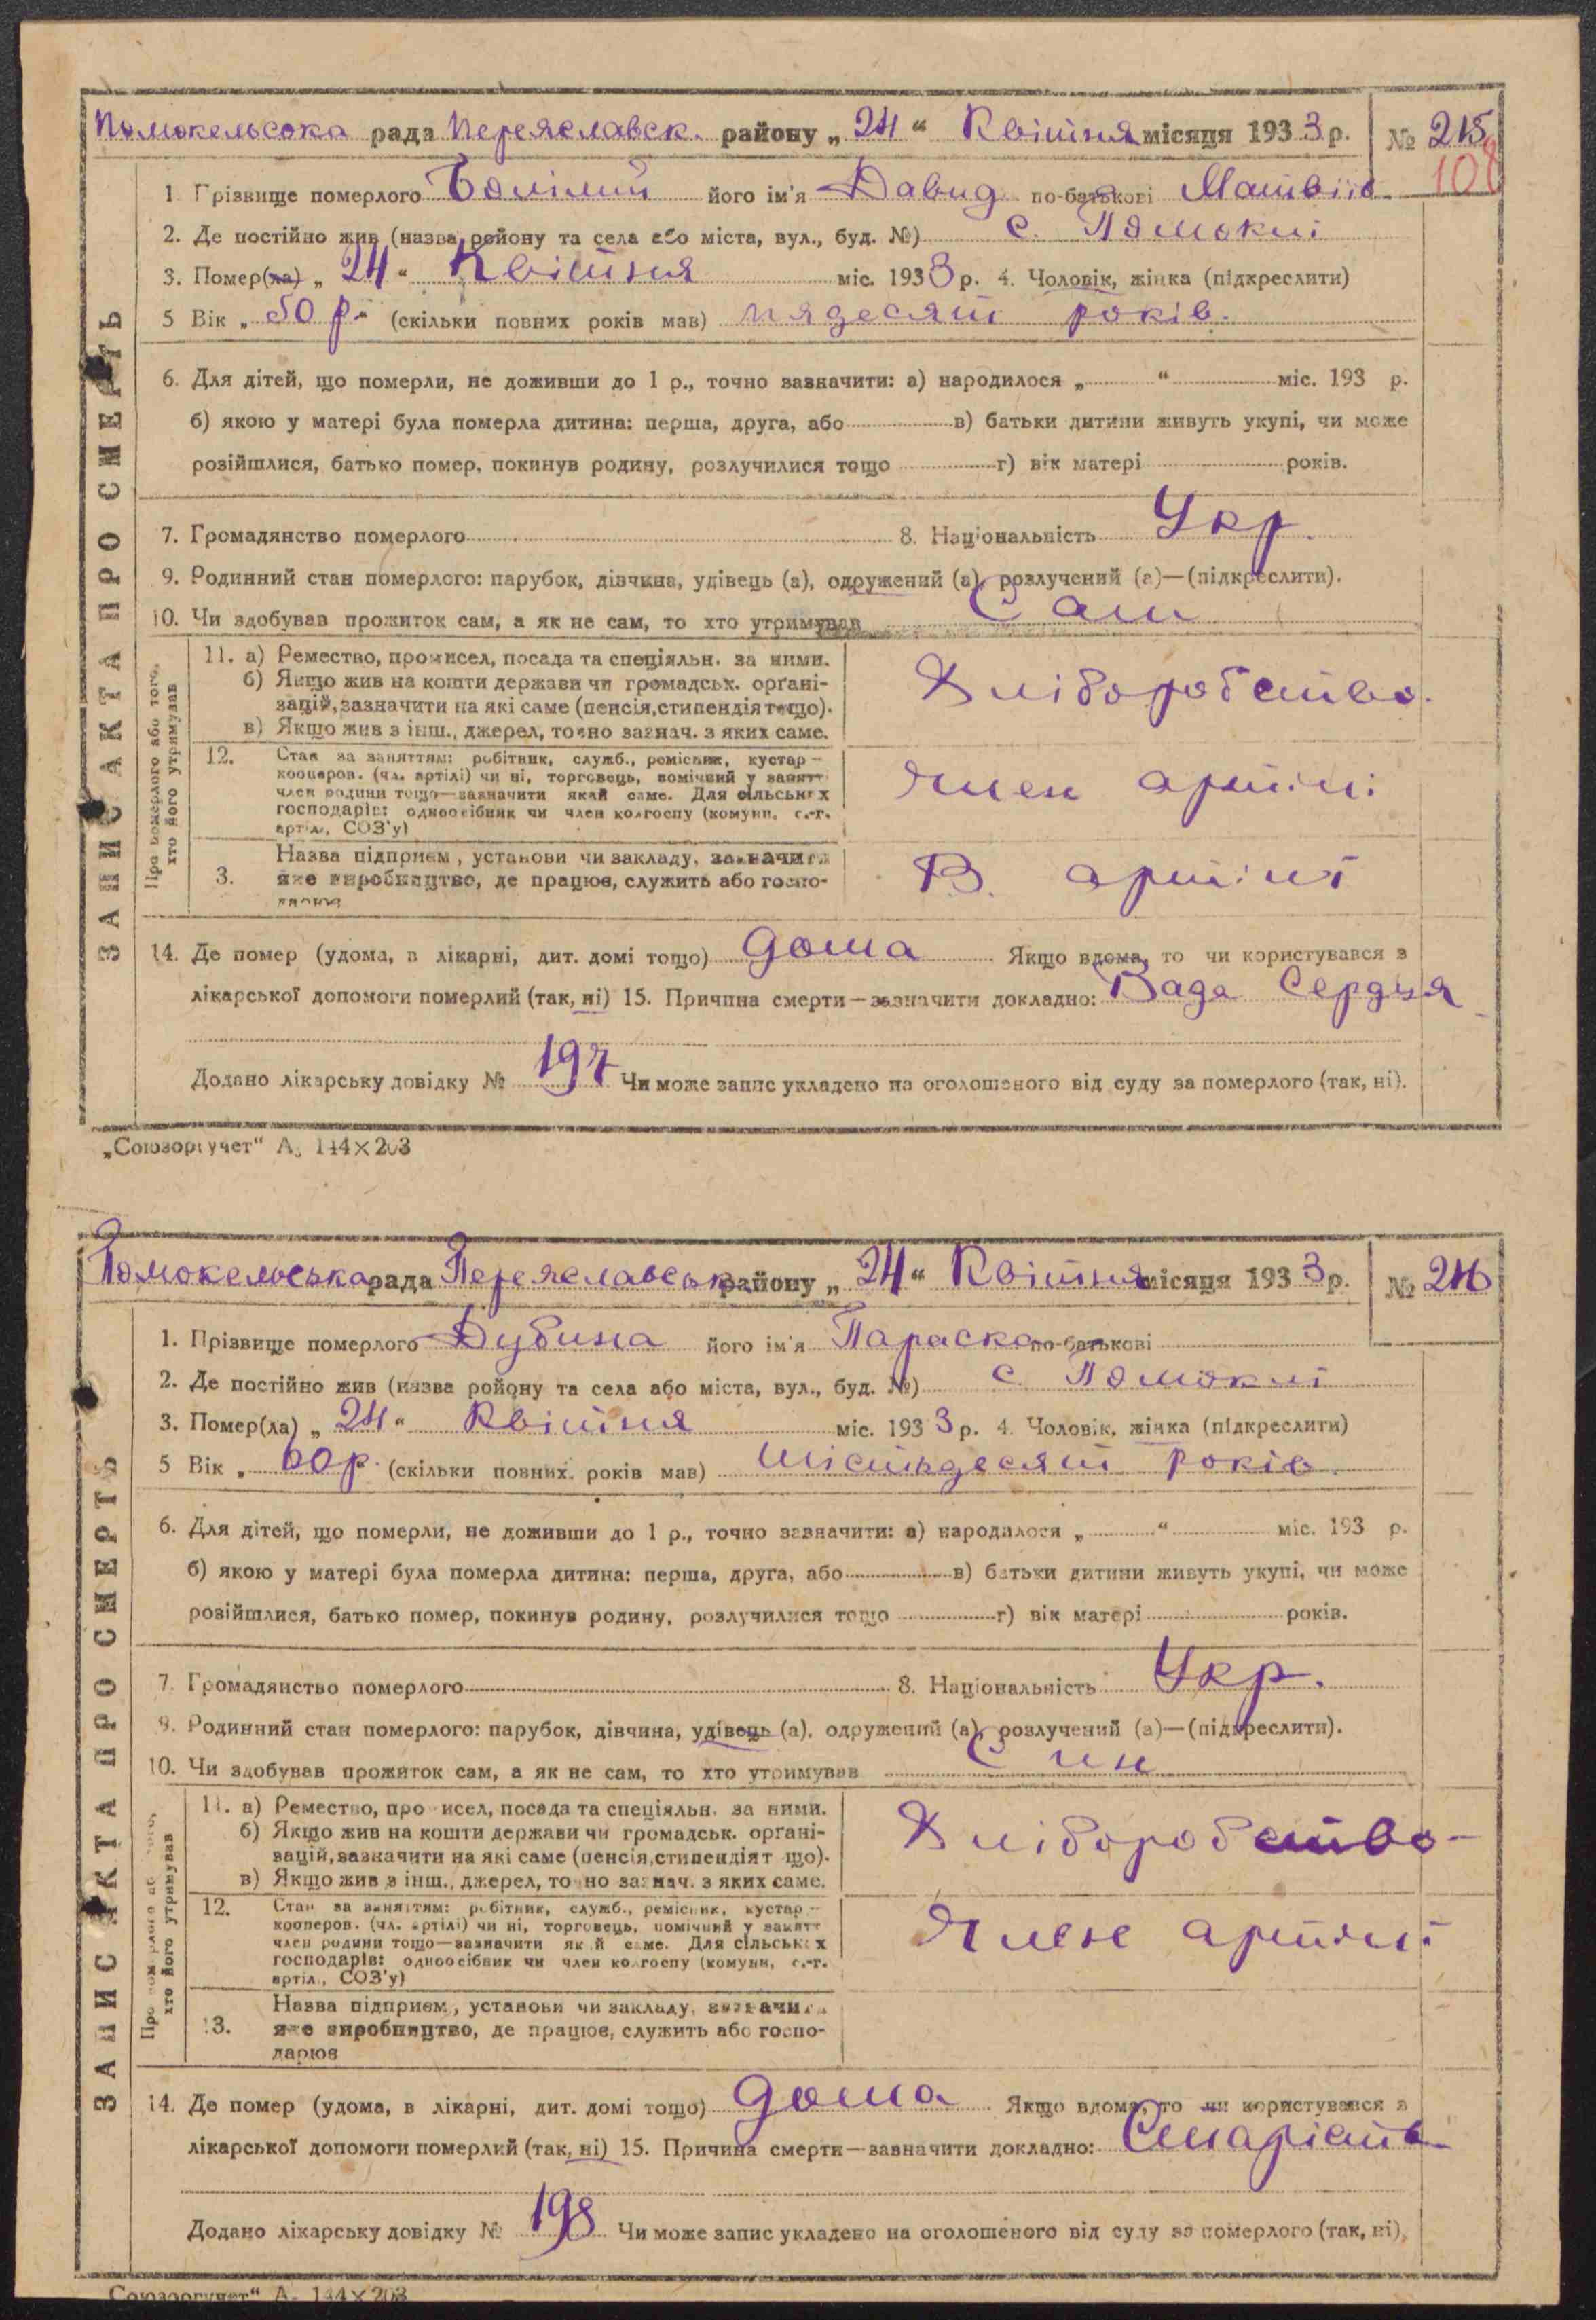 Помокельсока рада Переяславск. району „ 24 “ Квітня місяця 193 3 р. № 215
108
1 Прізвище померлого його ім'я Давид по-батькові
2. Де постійно жив (назва ройону та села або міста, вул., буд. №) с. Помоклі
3. Помер(ла) „ 24 “ Квітня міс. 193 3 р. 4. Чоловік, жінка (підкреслити)
5 Вік „ 50 р. “ (скільки повних років мав) пядесят років.
6. Для дітей, що померли, не доживши до 1 р., точно зазначити: а) народилося „ “ міс. 193 р.
б) якою у матері була померла дитина: перша, друга, або в) батьки дитини живуть укупі, чи може
розійшлися, батько помер, покинув родину, розлучилися тощо г) вік матері років.
7. Громадянство померлого 8. Національність Укр.
9. Родинний стан померлого: парубок, дівчина, удівець (а), одружений (а), розлучений (а)—(підкреслити).
10. Чи здобував прожиток сам, а як не сам, то хто утримував Сам
ЗАПИС АКТА ПРО СМЕРТЬ
Про померлого або того,
хто його утримував
11. а) Ремество, промисел, посада та спеціяльн. за ними.
б) Якщо жив на кошти держави чи громадськ. орґані-
зацій, зазначити на які саме (пенсія, стипендія тощо).
в) Якщо жив з інш., джерел, точно зазнач. з яких саме.
Хліборобство.
12. Стан за заняттям: робітник, служб., ремісник, кустар-
кооперов. (чл. артілі) чи ні, торговець, помічний у занятті
член родини тощо—зазначити який саме. Для сільських
господарів: одноосібник чи член колгоспу (комуни, с.-г.
артілі, СОЗ'у)
Член артілі
3. Назва підприєм, установи чи закладу, зазначити
яке виробництво, де працює, служить або госпо-
дарює
В. артілі
14. Де помер (удома, в лікарні, дит. домі тощо) дома Якщо вдома, то чи користувався з
лікарської допомоги померлий (так, ні) 15. Причина смерти—зазначити докладно: Вада Сердця
Додано лікарську довідку № 197 Чи може запис укладено на оголошеного від суду за померлого (так, ні).
„Союзоргучет“ А₅ 144×203
Помокельська рада Переяславськ. району „ 24 “ Квітня місяця 193 3 р. № 216
1. Прізвище померлого Дубина його ім'я Параска по-батькові
2. Де постійно жив (назва ройону та села або міста, вул., буд. №) с. Помоклі
3. Помер(ла) „ 24 “ Квітня міс. 193 3 р. 4. Чоловік, жінка (підкреслити)
5 Вік „ 60 р. (скільки повних років мав) шістьдесят років.
6. Для дітей, що померли, не доживши до 1 р., точно зазначити: а) народилося „ “ міс. 193 р.
б) якою у матері була померла дитина: перша, друга, або в) батьки дитини живуть укупі, чи може
розійшлися, батько помер, покинув родину, розлучилися тощо г) вік матері років.
7. Громадянство померлого 8. Національність Укр.
9. Родинний стан померлого: парубок, дівчина, удівець (а), одружений (а), розлучений (а)—(підкреслити).
10. Чи здобував прожиток сам, а як не сам, то хто утримував Син
ЗАПИС АКТА ПРО СМЕРТЬ
Про померлого або того,
хто його утримував
11. а) Ремество, промисел, посада та спеціяльн. за ними.
б) Якщо жив на кошти держави чи громадськ. орґані-
зацій, зазначити на які саме (пенсія, стипендія тощо).
в) Якщо жив з інш., джерел, точно зазнач. з яких саме.
Хліборобство-
12. Стан за заняттям: робітник, служб., ремісник, кустар-
кооперов. (чл. артілі) чи ні, торговець, помічний у занятт
член родини тощо—зазначити який саме. Для сільських
господарів: одноосібник чи член колгоспу (комуни, с.-г.
артіл., СОЗ'у)
Член артілі
13. Назва підприєм, установи чи закладу, зазначити
яке виробництво, де працює, служить або госпо-
дарює
14. Де помер (удома, в лікарні, дит. домі тощо) дома Якщо вдома, то чи користувався з
лікарської допомоги померлий (так, ні) 15. Причина смерти—зазначити докладно: Старість
Додано лікарську довідку № 198 Чи може запис укладено на оголошеного від суду за померлого (так, ні).
Союзоргучет“ А₅ 144×203